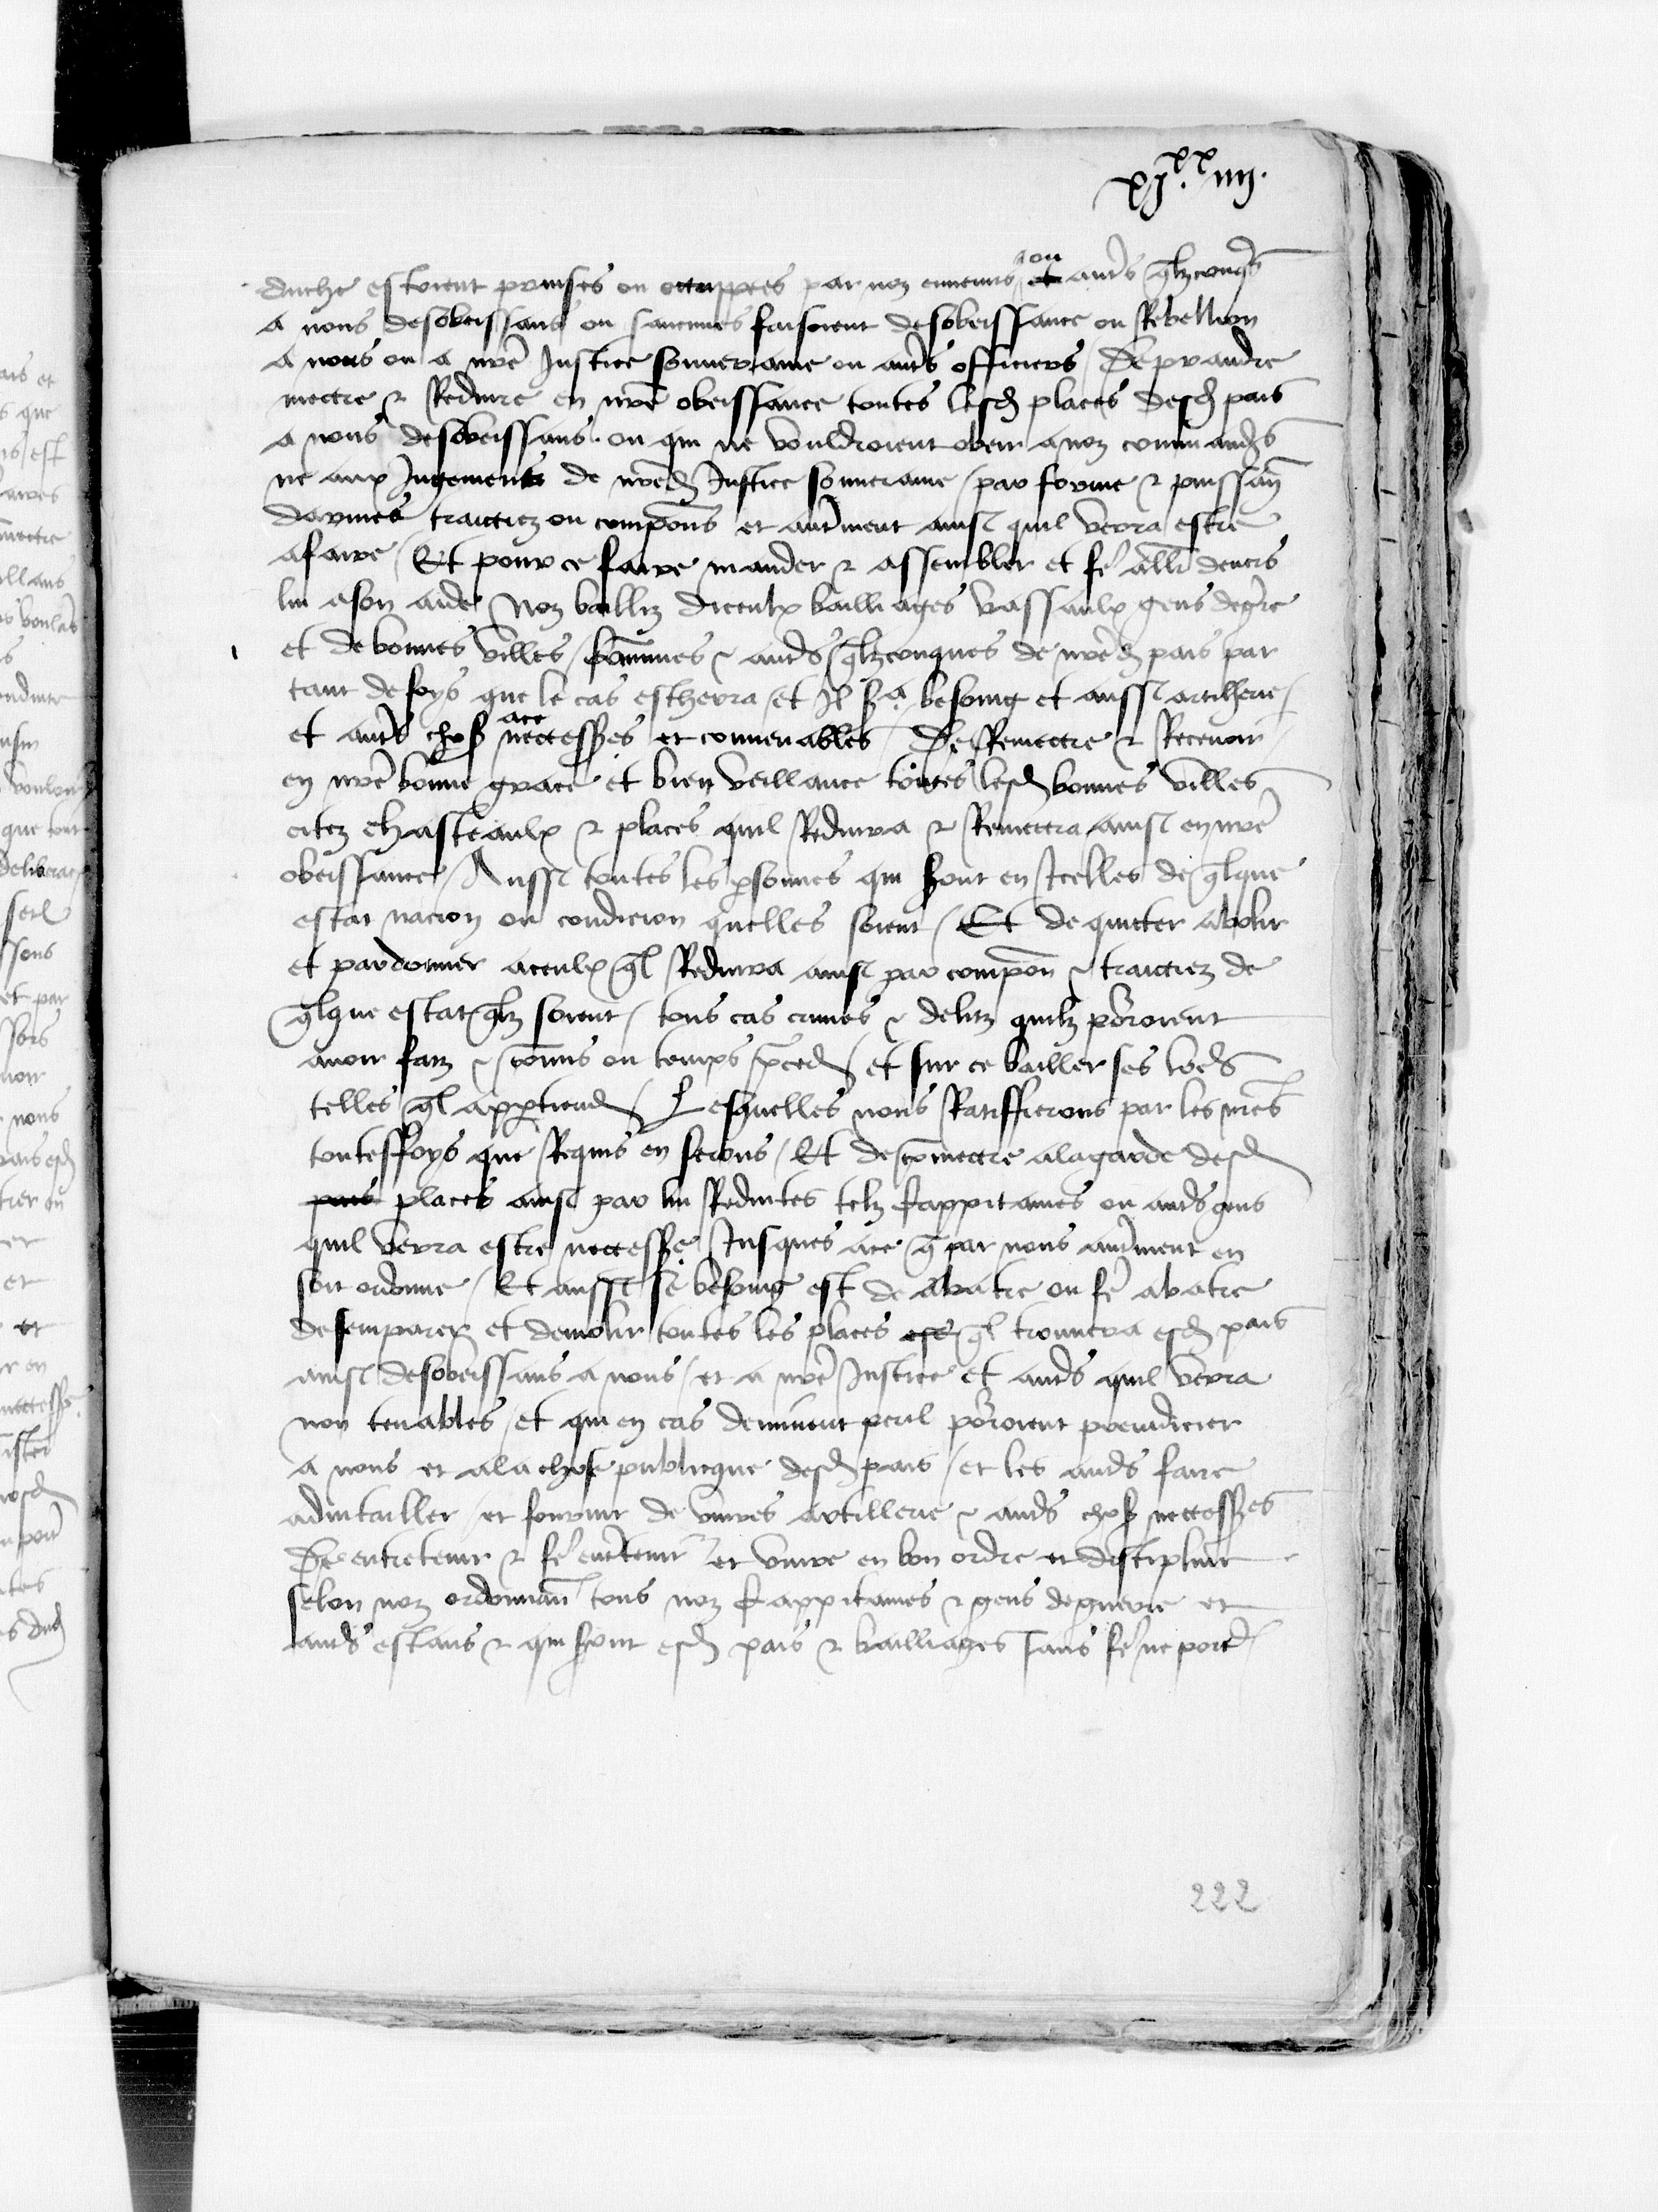 xj.xx iiij.
duche estoient prinses ou occuppees par noz ennemis ou et autrs qlzconqs
a nous desobeissans ou saucunes faisoient desobeissance ou Rebellion
a nous ou a nre Justice souueraine ou autrs officiers / De prandre
mectre & Reduire en nre obeissance toutes lesd places desd pais
a nous desobeissans ou qui ne vouldroient obeir a noz commandes
ne aux Jugemens de nred Justice souueraine / par forme & puissan
darmes traictiez ou compons et autrment ainsi quil verra estre
afaire / Et pour ce faire mander & assembler et fe allr deuers
lui a son aide Noz bailliz diceulx bailliages vassaulx gens degrre
et de bonnes villes / communes & autrs qlzconques de nred pais par
tant de foys que le cas escherra / et Jl sa besoing et aussi artillerie /
et autrs chos ace necessres et conuenables / De Remectre & Receuoir
en nre bonne grace et bien veillance toutes lesd bonnes villes
citez chasteaulx & places quil Reduira & Remectra ainsi en nre
obeissance / Aussi toutes les psonnes qui sont en Jcelles de qlque
estat nacion ou condicion quelles soient / Et de quicter abolir
et pardonner aceulx ql Reduira ainsi par compon & traictiez de
qlque estat qlz soient / tous cas crimes & delitz quilz porroient
auoir faiz & commis ou temps preced / et sur ce bailler ses lres
telles ql appartiend / Lesquelles nous Ratiffierons par les nres
toutesfoys que Requis en serons / Et de commectre alagarde desd
pais places ainsi par lui Reduites telz Cappitaines ou autrs gens
quil verra estre necessre Jusques ace q par nous autrment en
soit ordonne / Et aussi se besoing est de abatre ou fe abatre
desemparer et demolir toutes les places ese ql trouuera esd pais
ainsi desobeissans a nous / et a nre Justice et autrs quil verra
non tenables / et qui en cas deminent peril porroient preiudicier
a nous et ala chose publicque desd pais / et les autrs faire
aduitailler / et fournir de viures artillerie & autrs chos necessres
De entretenir & fe entretenir et viure en bon ordre et discipline
selon noz ordonnan tous noz Cappitaines & gens deguerre et
autrs estans & qui sont esd pais & bailliages sans fe ne port
222